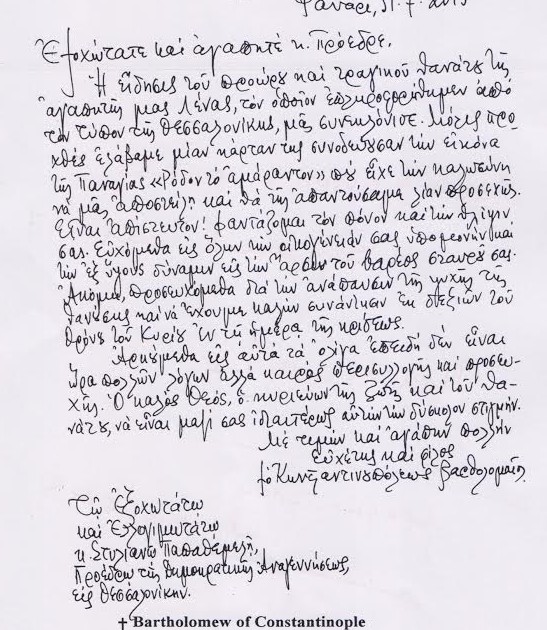 Φανάρι, 31.7.2015
Ἐξοχώτατε καὶ ἀγαπητὲ κ. Πρόεδρε,
Ἡ εἴδησις τοῦ προώρου καὶ τραγικοῦ θανάτου τῆς
ἀγαπητῆς μας Λένας, τὸν ὁποῖον ἐπληροφορήθημεν ἀπὸ
τὸν τύπον τῆς Θεσσαλονίκης, μᾶς συνεκλόνισε. Μόλις προ-
χθὲς ἐλάβαμε μίαν κάρταν της συνοδεύουσαν τὴν εἰκόνα
τῆς Παναγίας «Ρόδον τὸ ἀμάραντον» ποὺ εἶχε τὴν καλωσύνη
νὰ μᾶς ἀποστείλῃ καὶ θὰ τῆς ἀπαντούσαμε λίαν προσεχῶς.
Εἶναι ἀπίστευτον! Φαντάζομαι τὸν πόνον καὶ τὴν θλῖψιν
σας. Εὔχόμεθα εἰς ὅλην τὴν οἰκογένειάν σας ὑπομονὴν καὶ
τὴν ἐξ ὕψους δύναμιν εἰς τὴν ἄρσιν τοῦ βαρέος σταυροῦ σας.
Ἀκόμη, προσευχόμεθα διὰ τὴν ἀνάπαυσιν τῆς ψυχῆς τῆς
θανούσης καὶ νὰ ἔχουμε καλὴν συνάντησιν ἐκ δεξιῶν τοῦ
θρόνου τοῦ Κυρίου ἐν τῇ ἡμέρᾳ τῆς κρίσεως.
Ἀρκέμεθα εἰς αὐτὰ τὰ ὀλίγα ἐπειδὴ δὲν εἶναι
ὥρα πολλῶν λόγων ἀλλὰ καιρὸς περισυλλογῆς καὶ προσευ-
χῆς. Ὁ καλὸς Θεός, ὁ κυριεύων τῆς ζωῆς καὶ τοῦ θα-
νάτου, νὰ εἶναι μαζί σας ἰδιαιτέρως αὐτὴν τὴν δύσκολον στιγμήν.
Μὲ τιμὴν καὶ ἀγάπην πολλὴν
εὐχέτης καὶ φίλος
† ὁ Κωνσταντινουπόλεως Βαρθολομαῖος
Τῷ Ἐξοχωτάτῳ
καὶ Ἐλλογιμωτάτῳ
κ. Στυλιανῷ Παπαθεμελῆ,
Προέδρῳ τῆς Δημοκρατικῆς Ἀναγεννήσεως,
εἰς Θεσσαλονίκην.
† Bartholomew of Constantinople